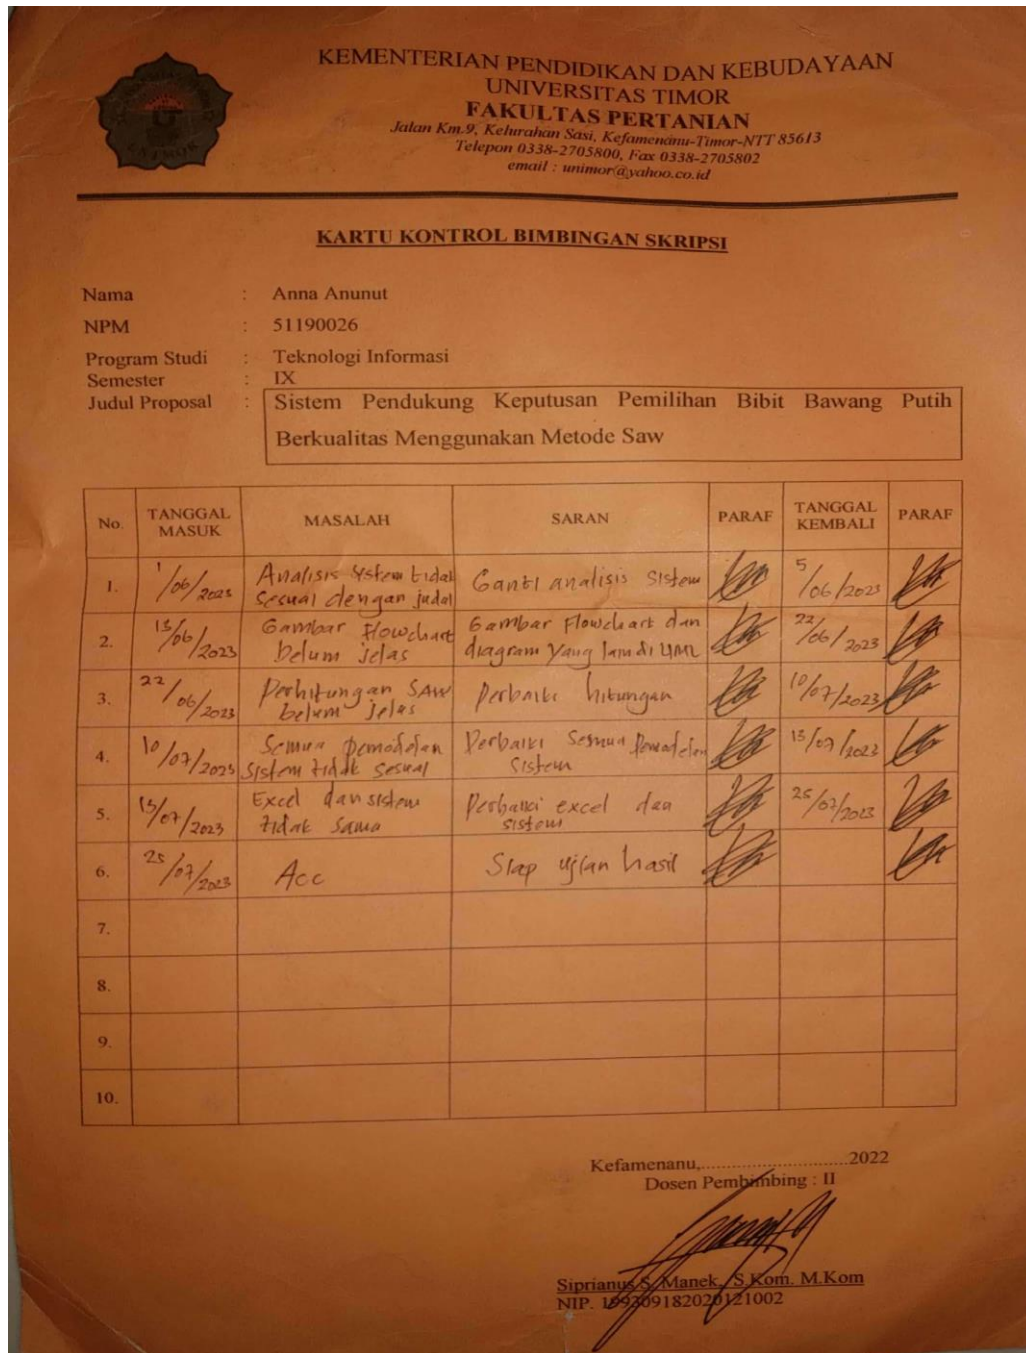 KEMENTERIAN PENDIDIKAN DAN KEBUDAYAAN
UNIVERSITAS TIMOR
FAKULTAS PERTANIAN
Jalan Km.9, Kelurahan Sasi, Kefamenanu-Timor-NTT 85613
Telepon 0338-2705800, Fax 0338-2705802
email : unimor@yahoo.co.id
UNIMOR
KARTU KONTROL BIMBINGAN SKRIPSI
Nama : Anna Anunut
NPM : 51190026
Program Studi : Teknologi Informasi
Semester : IX
Judul Proposal : Sistem Pendukung Keputusan Pemilihan Bibit Bawang Putih
Berkualitas Menggunakan Metode Saw
No. TANGGAL MASUK MASALAH SARAN PARAF TANGGAL KEMBALI PARAF
1. 1/06/2023 Analisis system tidak sesuai dengan judul Ganti analisis sistem 5/06/2023
2. 15/06/2023 Gambar Flowchart belum jelas Gambar Flowchart dan diagram yang lam di UML 22/06/2023
3. 22/06/2023 Perhitungan SAW belum jelas Perbaiki hitungan 10/07/2023
4. 10/07/2023 Semua pemodelan sistem tidak sesuai Perbaiki Semua Pemodelan Sistem 15/07/2023
5. 15/07/2023 Excel dan sistem tidak sama Perbaiki excel dan sistem 25/07/2023
6. 25/07/2023 Acc Siap ujian hasil
7.
8.
9.
10.
Kefamenanu,..............................2022
Dosen Pembimbing : II
Siprianus S. Manek, S.Kom. M.Kom
NIP. 199309182020121002